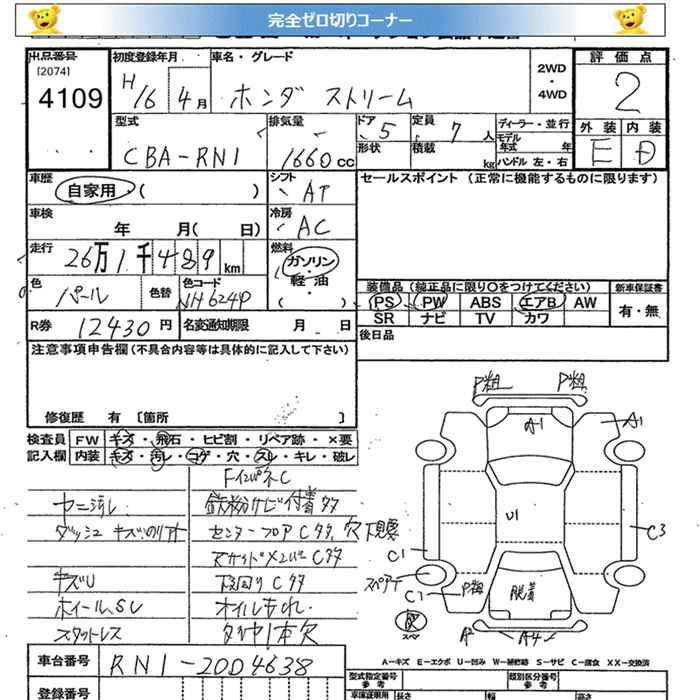 完全ゼロ切りコーナー
出品番号 初度登録年月 車名・グレード 評価点
[2074]
4109 H16 4月 ホンダ ストリーム 2WD・4WD 2
型式 排気量 ドア 5 定員 7人 ディーラー・並行 外装 内装
CBA-RN1 1660cc 形状 積載 kg モデル年式 年 E D
ハンドル 左・右
車歴 シフト セールスポイント (正常に機能するものに限ります)
自家用 ( ) AT
車検 冷房
年 月( 日) AC
走行 燃料
26万1千489km ガソリン・軽・油 ( )
色 色替 色コード 装備品 (純正品に限り○をつけてください) 新車保証書
パール NH624P PS PW ABS エアB AW 有・無
SR ナビ TV カワ
R券 12430円 名変通知期限 月 日 後日品
注意事項申告欄(不具合内容等は具体的に記入して下さい)
修復歴 有 [箇所 ]
検査員 FW キズ・飛石・ヒビ割・リペア跡・×要
記入欄 内装 キズ・汚レ・コゲ・穴・スレ・キレ・破レ
FインパネC
ヤニ汚レ 鉄粉サビ付着多々
センターフロアC多々、穴
C多
キズU 下回りC多
ホイールSU オイルもれ
スタットレス タイヤ1本欠
A1
A1
U1
C1
C3
スペアナ
C2
脱着
欠
スペ
A
A4
A―キズ E―エクボ U―凹み W―補修跡 S―サビ C―腐食 XX―交換済
車台番号 RN1-2004638 型式指定番号 類別区分番号
参考 参考
登録番号 車庫証明用 長さ 幅 高さ